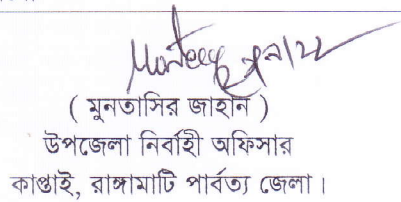 ( মুনতাসির জাহান )
উপজেলা নির্বাহী অফিসার
কাপ্তাই, রাঙ্গামাটি পার্বত্য জেলা।